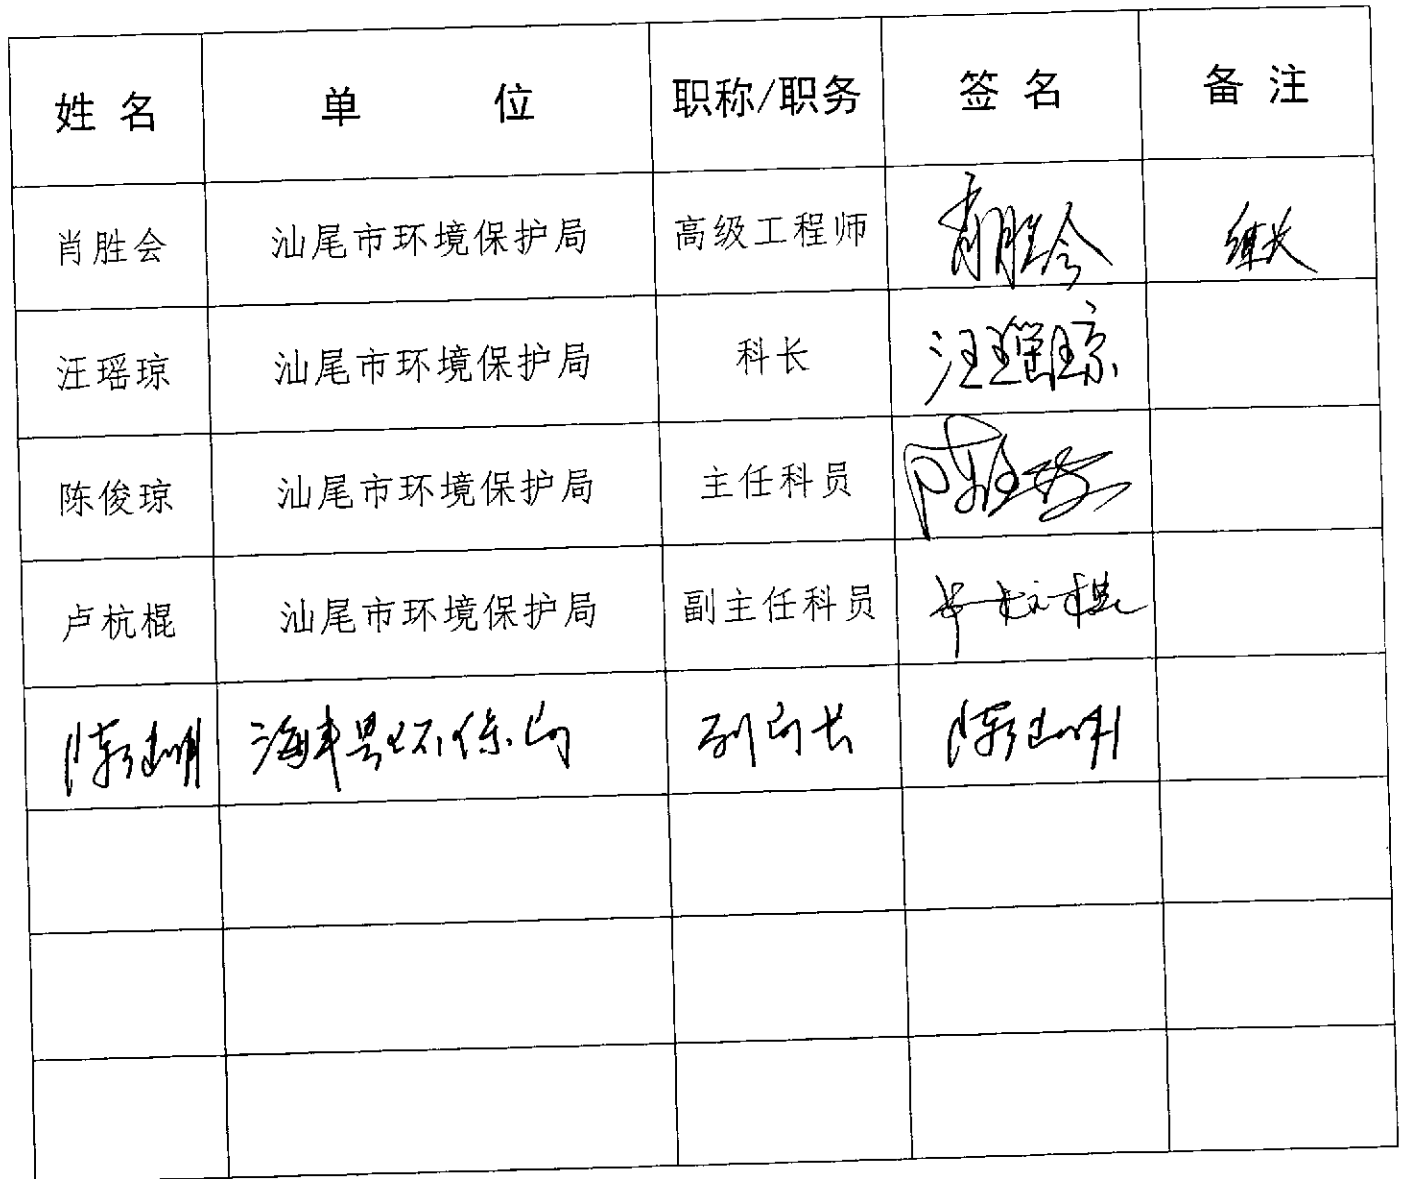 姓 名 单 位 职称/职务 签 名 备 注
肖胜会 汕尾市环境保护局 高级工程师 肖胜会 组长
汪瑶琼 汕尾市环境保护局 科长 汪瑶琼
陈俊琼 汕尾市环境保护局 主任科员 陈俊琼
卢杭棍 汕尾市环境保护局 副主任科员 卢杭棍
海丰县环保局 副局长